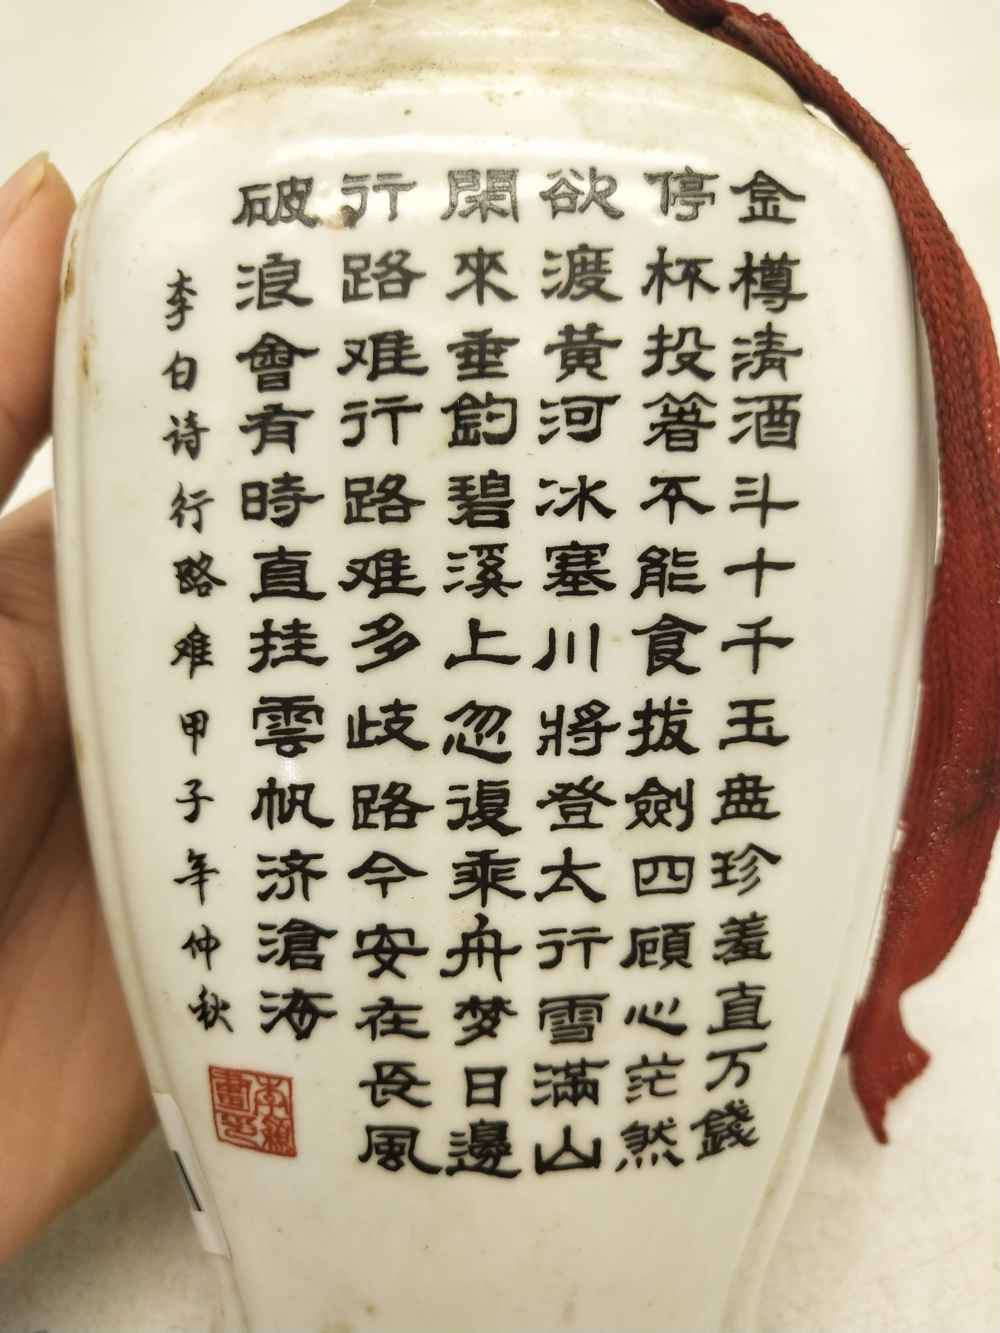 金樽清酒斗十千玉盘珍羞直万錢
停杯投箸不能食拔劍四顾心茫然
欲渡黄河冰塞川將登太行雪滿山
閑來垂釣碧溪上忽復乘舟梦日邊
行路难行路难多歧路今安在長風
破浪會有時直挂雲帆济滄海
李白诗行路难甲子年仲秋